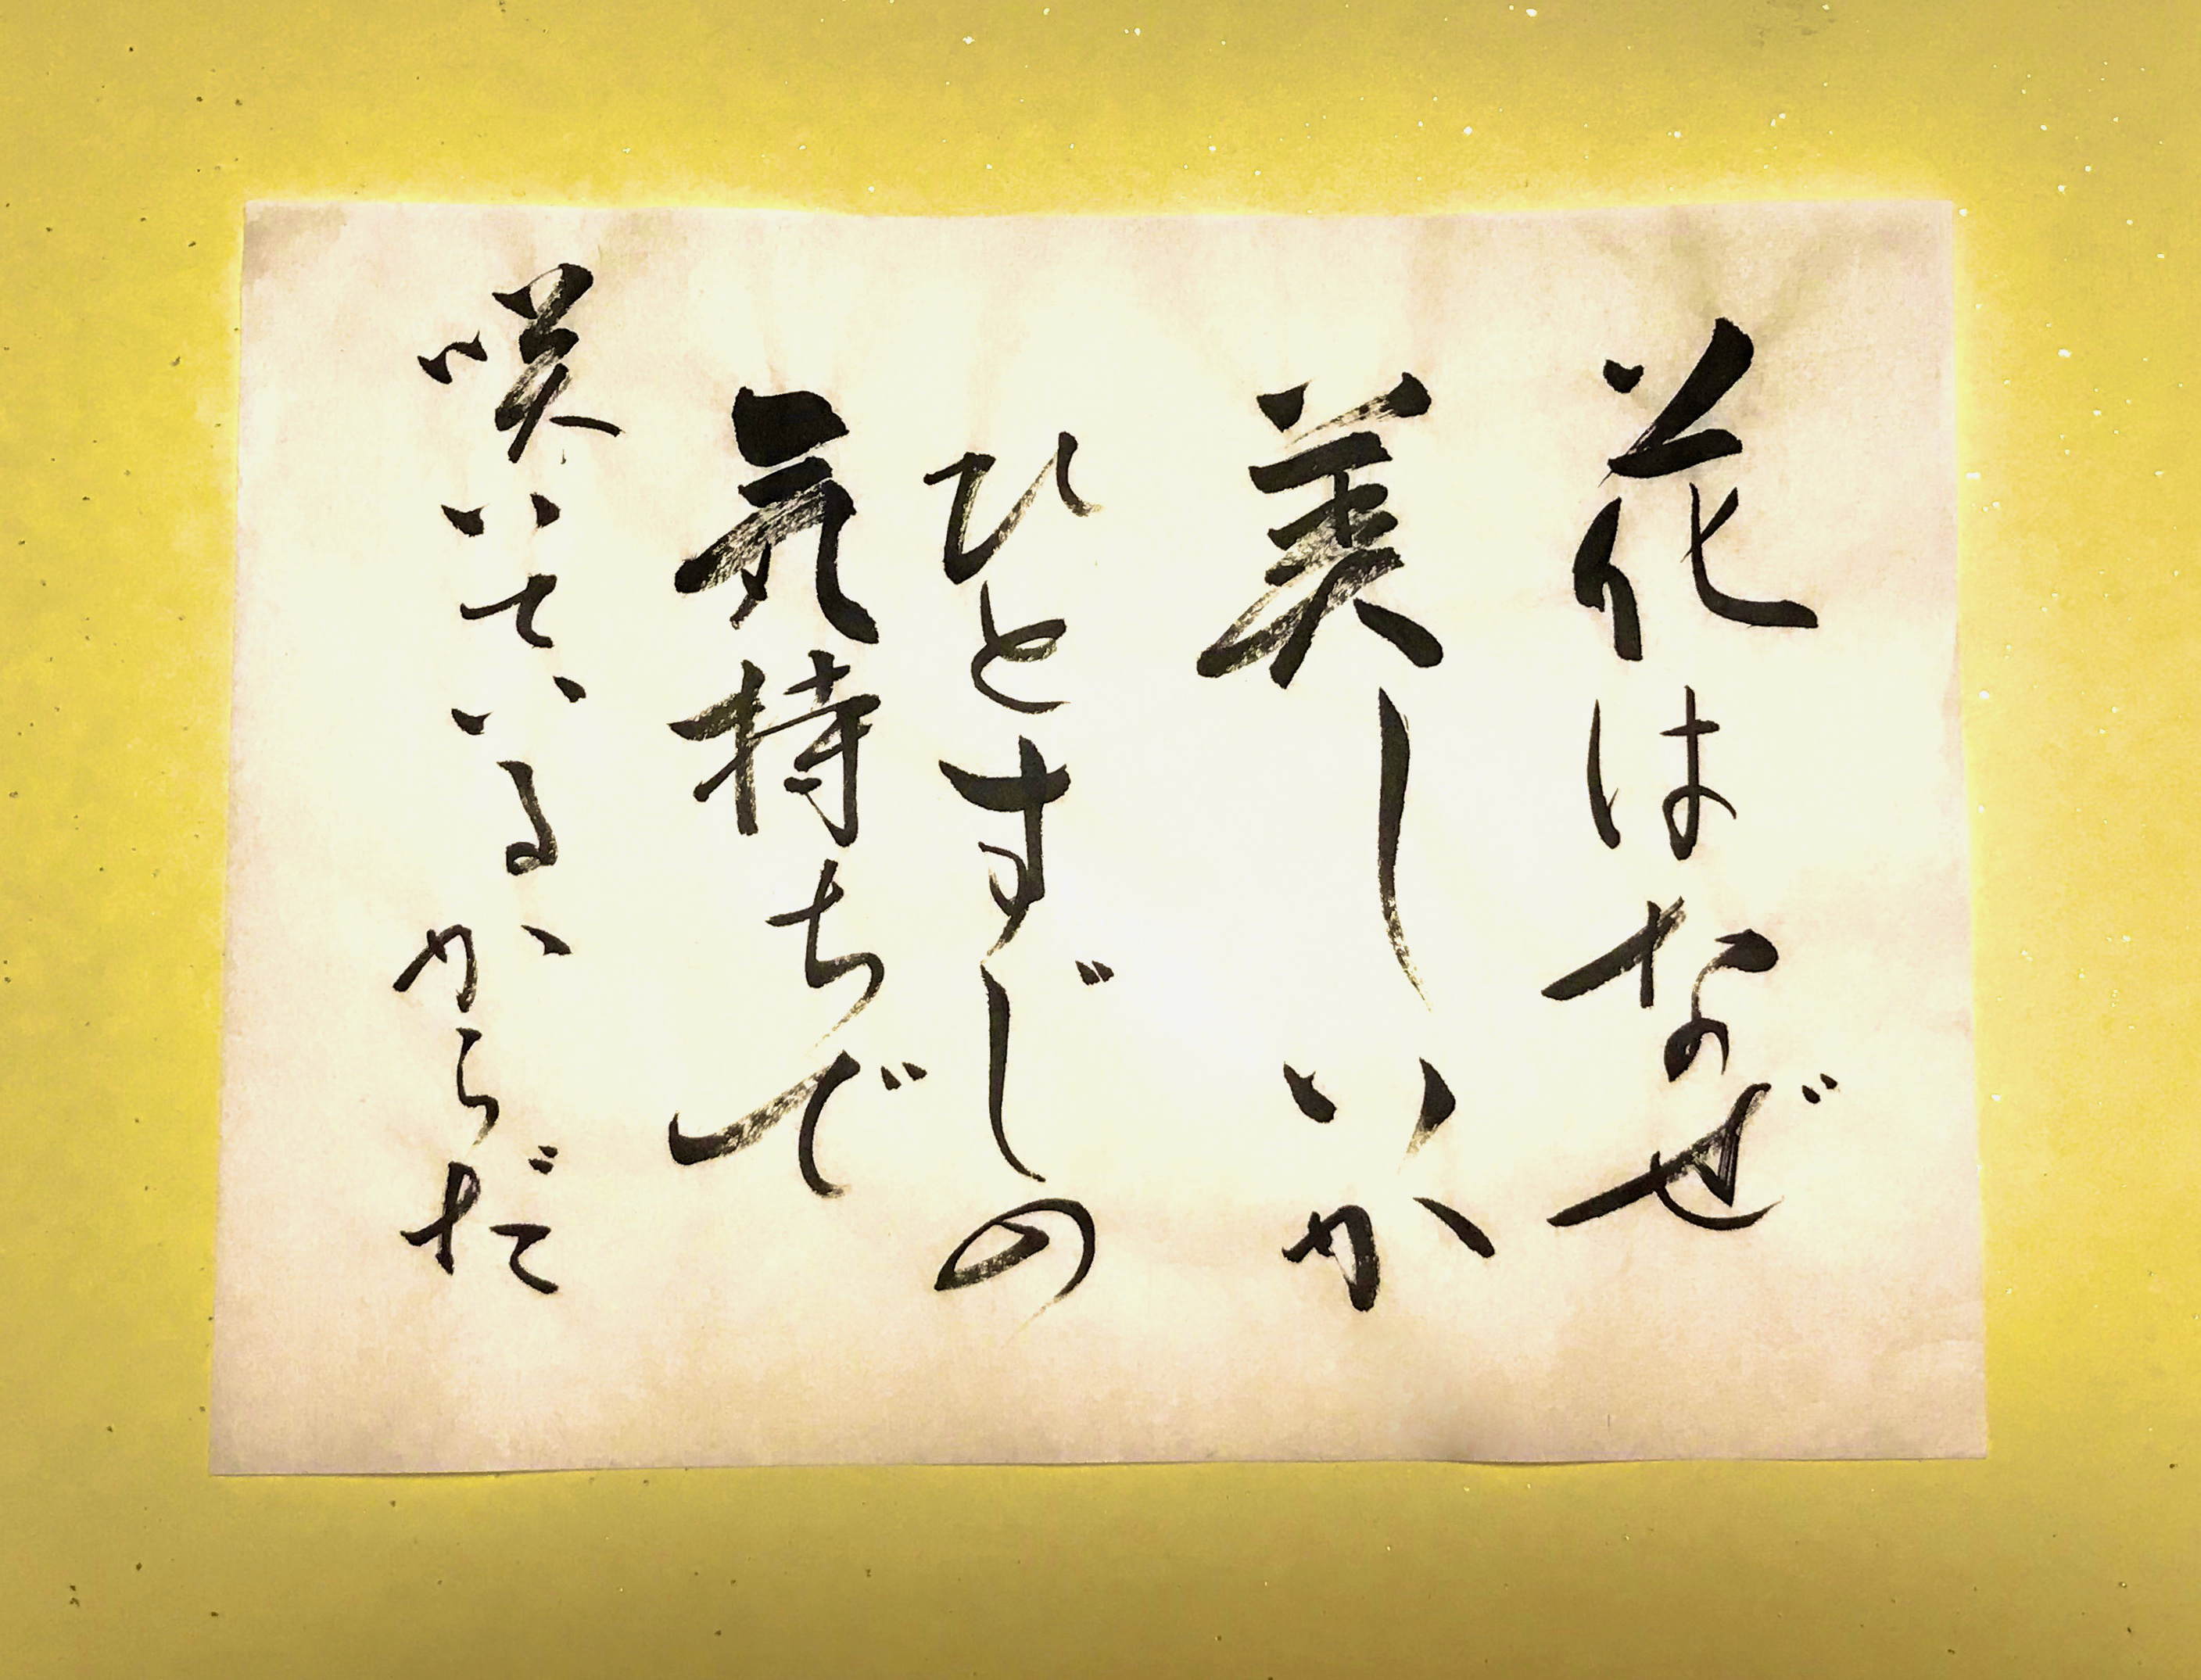 花はなぜ
美しいか
ひとすじの
気持ちで
咲いているからだ